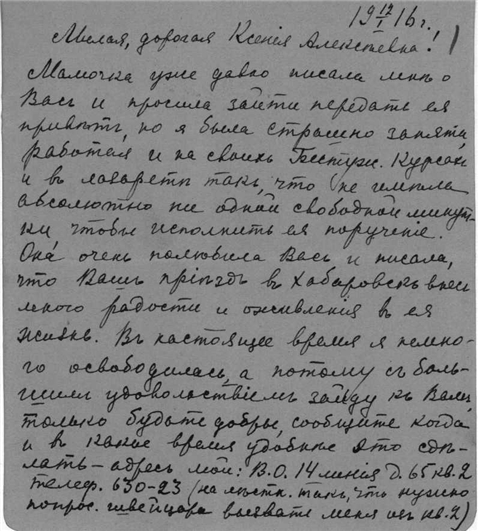 19 12/I 16 г.
Милая, дорогая Ксенія Алексѣевна!
Мамочка уже давно писала мнѣ о
Васъ и просила зайти передать ея
привѣтъ, но я была страшно занята,
работая и на своихъ Бестуж. Курсахъ
и въ лазаретѣ такъ, что не имѣла
абсолютно ни одной свободной минут-
ки чтобы исполнить ея порученіе.
Она очень полюбила Васъ и писала,
что Вашъ пріѣздъ въ Хабаровскъ внесъ
много радости и оживленія въ ея
жизнь. Въ настоящее время я немно-
го освободилась, а потому съ боль-
шимъ удовольствіемъ зайду къ Вамъ,
только будьте добры, сообщите когда
и въ какое время удобнѣе это сдѣ-
лать – адресъ мой: В.О. 14 линія д. 65 кв. 2
телеф. 630-23 (на лѣстн. такъ, что нужно
попрос. швейцара вызвать меня изъ кв. 2)